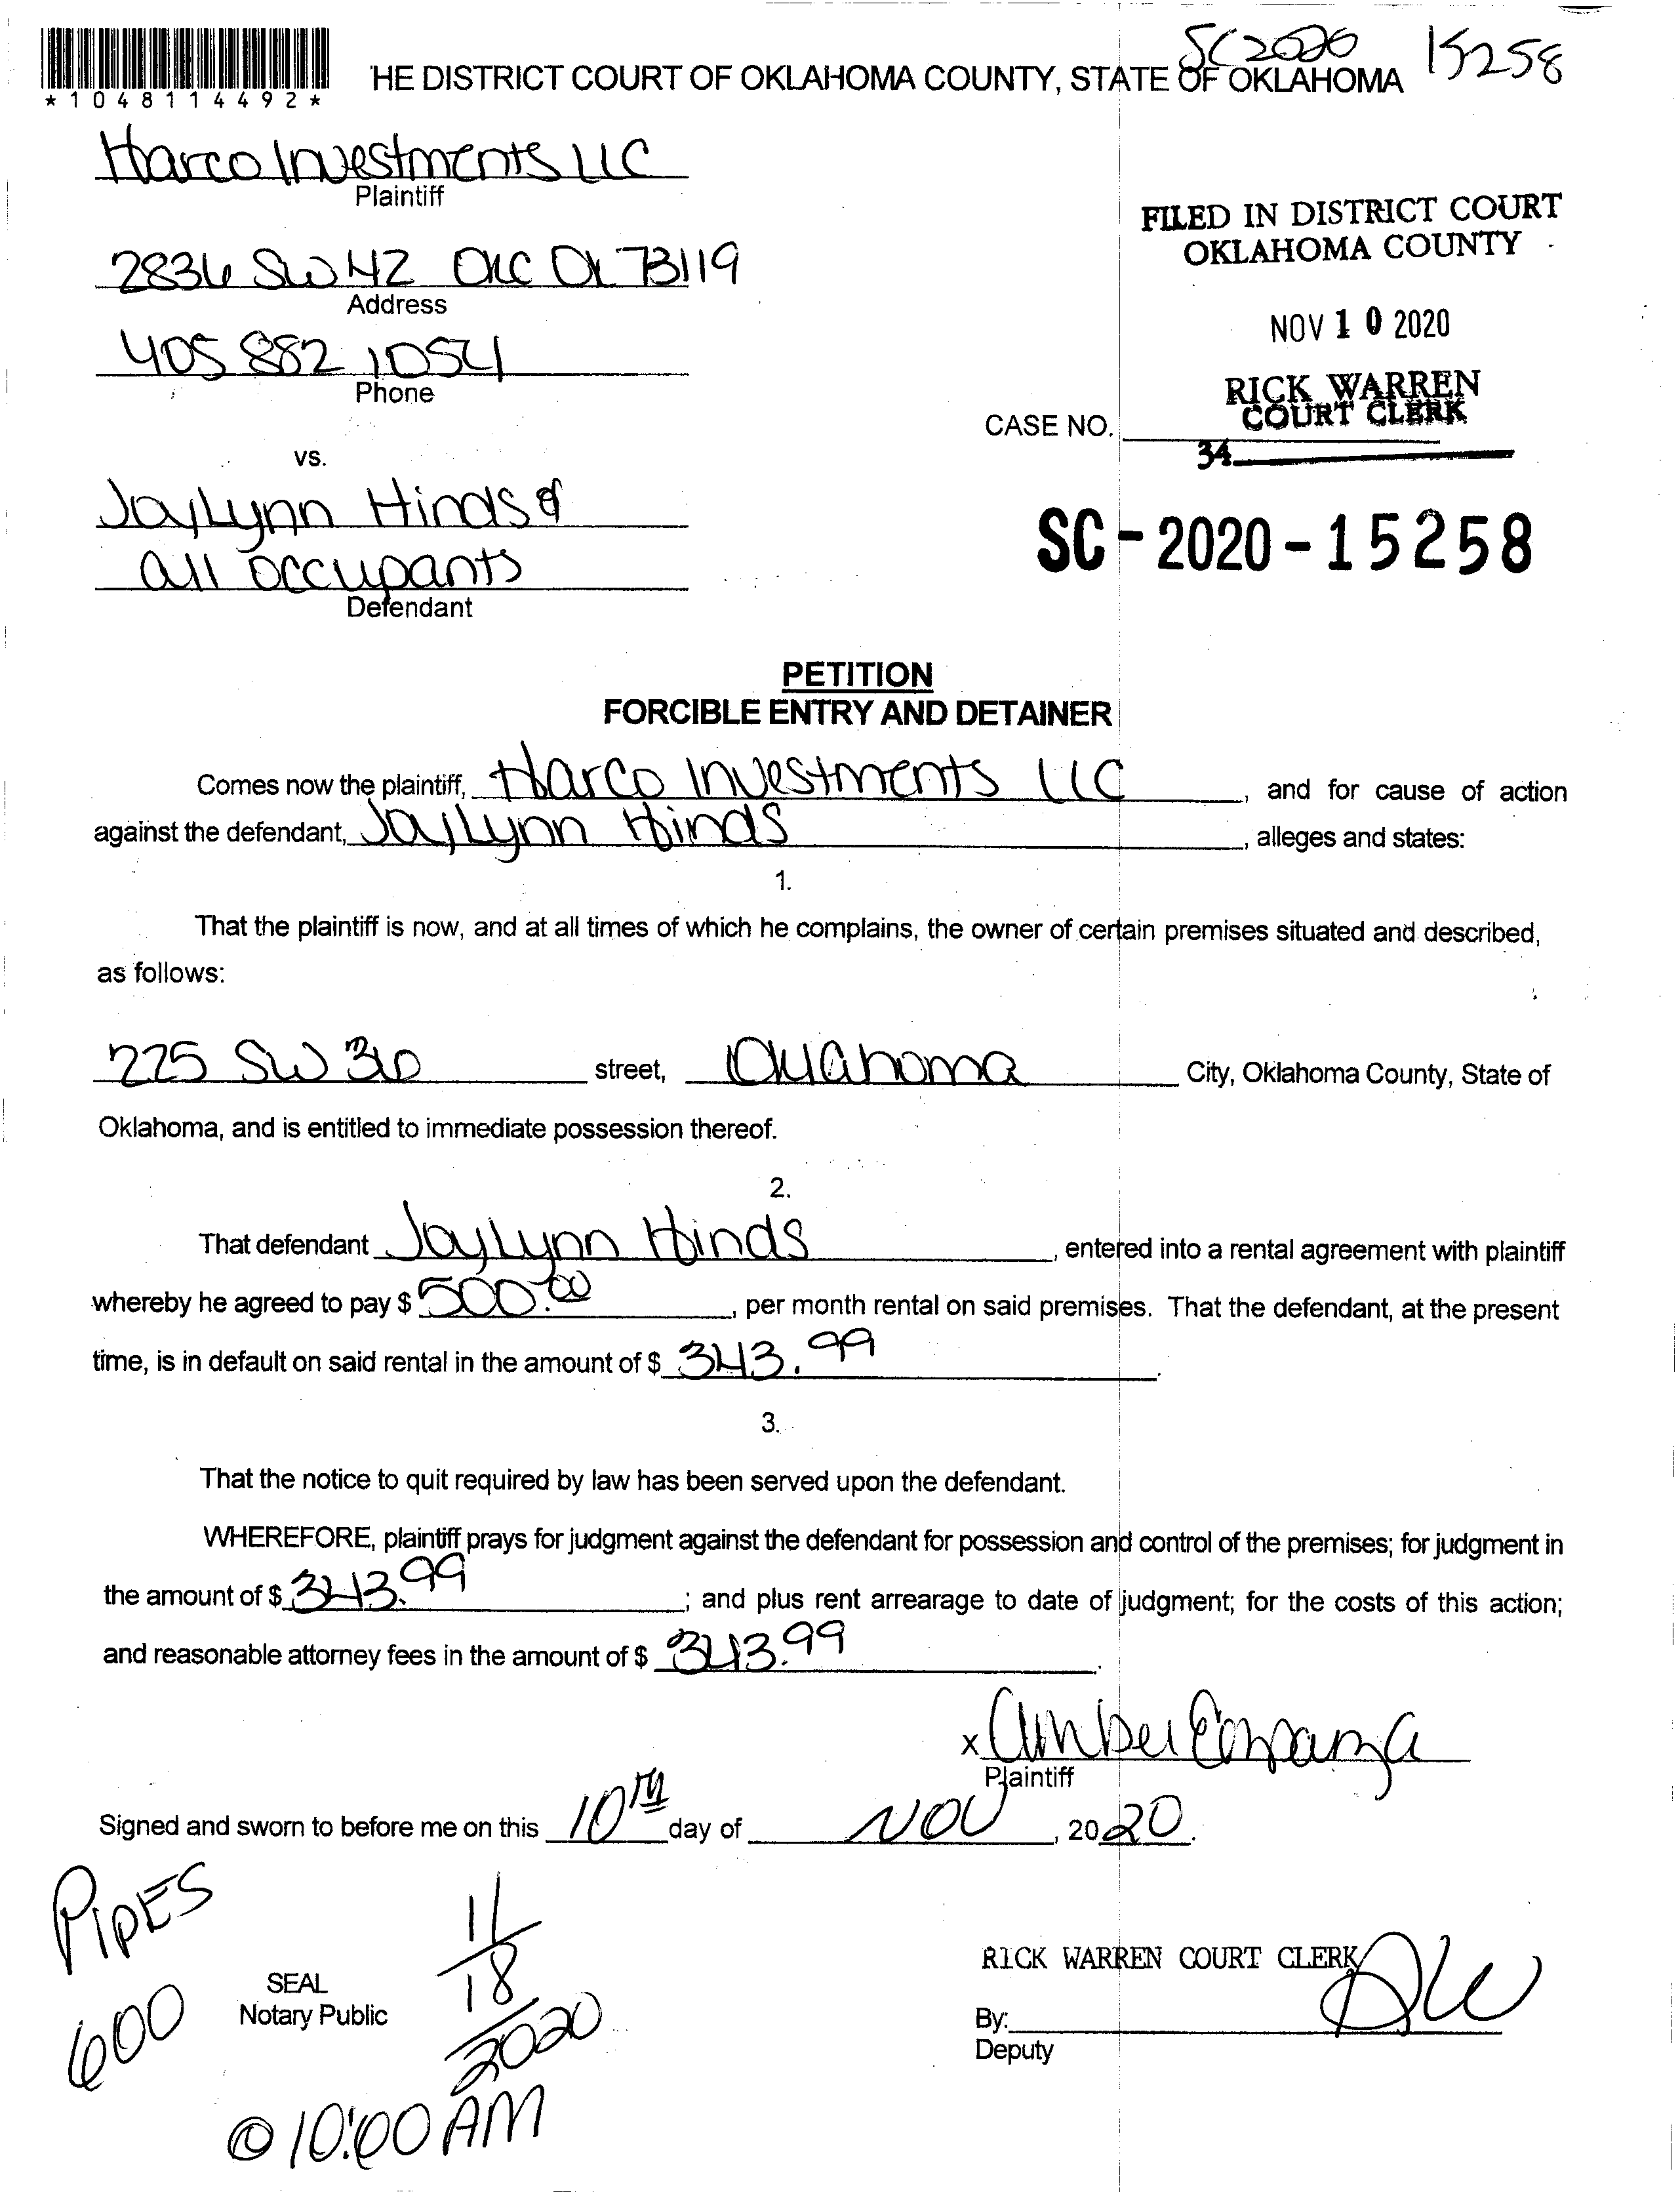 SC2020 15258
*1048114492*
HE DISTRICT COURT OF OKLAHOMA COUNTY, STATE OF OKLAHOMA
Harco Investments LLC
Plaintiff
2836 SW 42 OKC OK 73119
Address
405 882 1054
Phone
FILED IN DISTRICT COURT
OKLAHOMA COUNTY
NOV 10 2020
RICK WARREN
COURT CLERK
CASE NO.
34
vs.
JayLynn Hinds &
all occupants
Defendant
SC-2020-15258
PETITION
FORCIBLE ENTRY AND DETAINER
Comes now the plaintiff, Harco Investments LLC, and for cause of action
against the defendant, JayLynn Hinds, alleges and states:
1.
That the plaintiff is now, and at all times of which he complains, the owner of certain premises situated and described,
as follows:
225 SW 36 street, Oklahoma City, Oklahoma County, State of
Oklahoma, and is entitled to immediate possession thereof.
2.
That defendant JayLynn Hinds, entered into a rental agreement with plaintiff
whereby he agreed to pay $ 500.00, per month rental on said premises. That the defendant, at the present
time, is in default on said rental in the amount of $ 343.99.
3.
That the notice to quit required by law has been served upon the defendant.
WHEREFORE, plaintiff prays for judgment against the defendant for possession and control of the premises; for judgment in
the amount of $ 343.99; and plus rent arrearage to date of judgment; for the costs of this action;
and reasonable attorney fees in the amount of $ 343.99.
x Amber
Plaintiff
Signed and sworn to before me on this 10TH day of NOV, 2020.
PIPES
600
SEAL
Notary Public
11/18/2020
@ 10:00 AM
RICK WARREN COURT CLERK
By:
Deputy